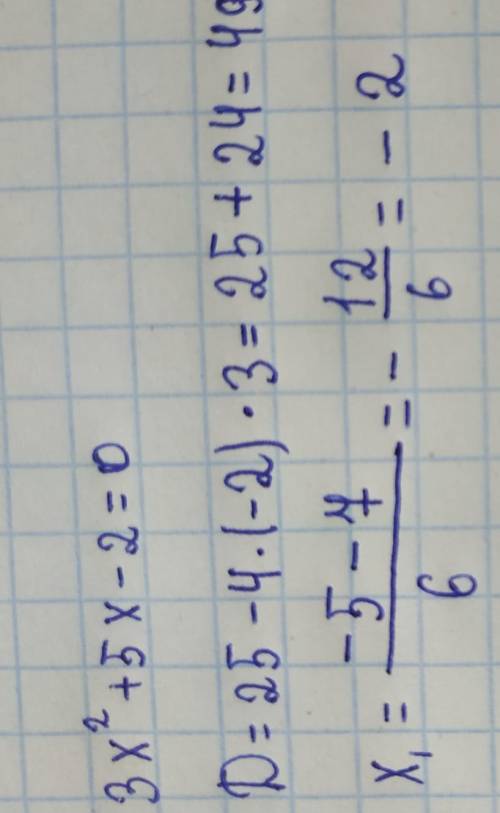 3x² + 5x - 2 = 0
D = 25 - 4·(-2)·3 = 25 + 24 = 49
x₁ = \frac{-5 - 7}{6} = - \frac{12}{6} = - 2